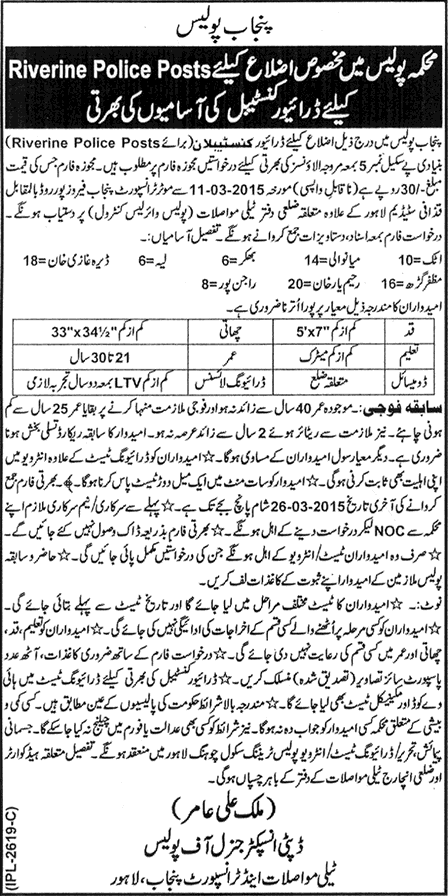 پنجاب پولیس
محکمہ پولیس میں مخصوص اضلاع کیلئے Riverine Police Posts
کیلئے ڈرائیور کنسٹیبل کی آسامیوں کی بھرتی
پنجاب پولیس میں درج ذیل اضلاع کیلئے ڈرائیور کنسٹیبلان (برائے Riverine Police Posts)
بنیادی پے سکیل نمبر 5 بمعہ مروجہ الاؤنسز کی بھرتی کیلئے درخواستیں مجوزہ فارم پر مطلوب ہیں۔ مجوزہ فارم جس کی قیمت
مبلغ -/30 روپے ہے (ناقابل واپسی) مورخہ 11-03-2015 سے موٹر ٹرانسپورٹ پنجاب فیروز پور روڈ بالمقابل
قذافی سٹیڈیم لاہور کے علاوہ متعلقہ ضلعی دفتر ٹیلی مواصلات (پولیس وائرلیس کنٹرول) پر دستیاب ہونگے۔
درخواست فارم بمعہ اسناد، دستاویزات جمع کروانے ہونگے۔ تفصیل آسامیاں:۔
اٹک=10 میانوالی=14 بھکر=6 لیہ=6 ڈیرہ غازی خان=18
مظفر گڑھ=16 رحیم یار خان=20 راجن پور=8
امیدواران کا مندرجہ ذیل معیار پر پورا اُترنا ضروری ہے۔
قد کم از کم "7'x5 چھاتی کم از کم "33"x 34½
تعلیم کم از کم میٹرک عمر 21 تا 30 سال
ڈومیسائل متعلقہ ضلع ڈرائیونگ لائسنس کم از کم LTV بمعہ دو سال تجربہ لازمی
سابقہ فوجی:۔ موجودہ عمر 40 سال سے زائد نہ ہو اور فوجی ملازمت منہا کرنے پر بقایا عمر 25 سال سے کم
ہونی چاہئے۔ نیز ملازمت سے ریٹائر ہوئے 2 سال سے زائد عرصہ نہ ہو۔ امیدوار کا سابقہ ریکارڈ تسلی بخش ہونا
ضروری ہے۔ دیگر معیار سول امیدواران کے مساوی ہوگا۔ ☆ امیدواران کو ڈرائیونگ ٹیسٹ کے علاوہ انٹرویو میں
اپنی اہلیت بھی ثابت کرنی ہوگی۔ ☆ امیدوار کو سات منٹ میں ایک میل دوڑ ٹیسٹ پاس کرنا ہوگا۔ ☆ بھرتی فارم جمع
کروانے کی آخری تاریخ 26-03-2015 شام پانچ بجے تک ہے۔ ☆ پہلے سے سرکاری/نیم سرکاری ملازم اپنے
محکمہ سے NOC لیکر درخواست دینے کے اہل ہونگے۔ ☆ بھرتی فارم بذریعہ ڈاک وصول نہیں کئے جائیں گے۔
☆ صرف وہ امیدواران ٹیسٹ/انٹرویو کے اہل ہونگے جن کی درخواستیں مکمل پائی جائیں گی۔ ☆ حاضر و سابقہ
پولیس ملازمین کے امیدوار اپنے ثبوت کے کاغذات لف کریں۔
نوٹ:۔ ☆ امیدواران کا ٹیسٹ مختلف مراحل میں لیا جائے گا اور تاریخ ٹیسٹ سے پہلے بتائی جائے گی۔
☆ امیدواران کو کسی مرحلہ پر اُٹھنے والے کسی قسم کے اخراجات کی ادائیگی نہیں کی جائے گی۔ ☆ امیدواران کو تعلیم، قد،
چھاتی اور عمر میں کسی قسم کی رعایت نہیں دی جائے گی۔ ☆ درخواست فارم کے ساتھ ضروری کاغذات، آٹھ عدد
پاسپورٹ سائز تصاویر (تصدیق شدہ) منسلک کریں۔ ☆ ڈرائیور کنسٹیبل کی بھرتی کیلئے ڈرائیونگ ٹیسٹ میں ہائی
وے کوڈ اور مکینیکل ٹیسٹ بھی لیا جائے گا۔ ☆ مندرجہ بالا شرائط حکومت کی پالیسیوں کے عین مطابق ہیں۔ کسی کمی و
بیشی کے متعلق محکمہ کسی امیدوار کو جواب دہ نہ ہوگا۔ نیز شرائط کو کسی بھی عدالت یا فورم میں چیلنج نہ کیا جا سکے گا۔ جسمانی
پیمائش، تحریر/ڈرائیونگ ٹیسٹ/انٹرویو پولیس ٹریننگ سکول چوہنگ لاہور میں منعقد ہونگے۔ تفصیل متعلقہ ہیڈ کوارٹر
اور ضلعی انچارج ٹیلی مواصلات کے دفتر کے باہر چسپاں ہوگی۔
(ملک علی عامر)
ڈپٹی انسپکٹر جنرل آف پولیس
ٹیلی مواصلات اینڈ ٹرانسپورٹ پنجاب، لاہور
(IPL-2619-C)